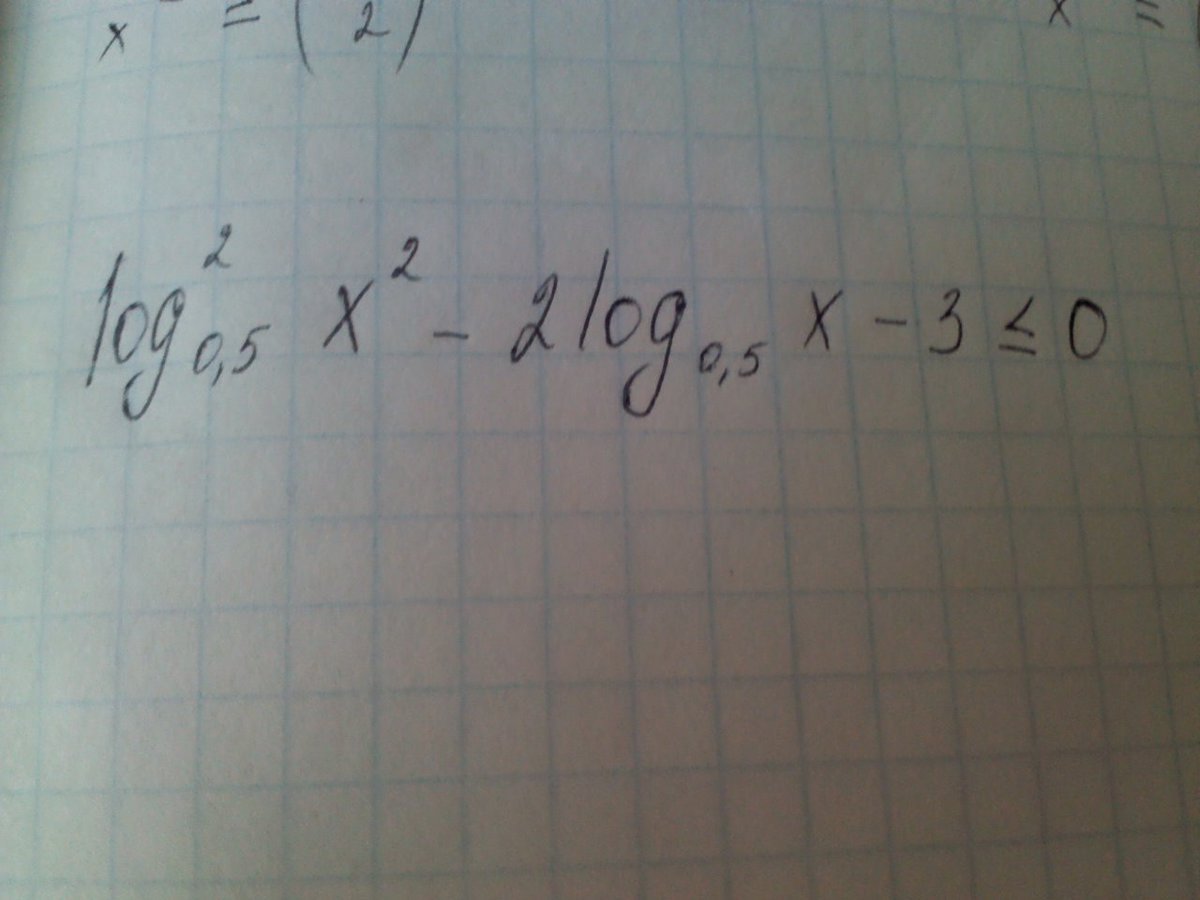 x = (2) x =
log²₀,₅ x² - 2log₀,₅ x - 3 ≤ 0